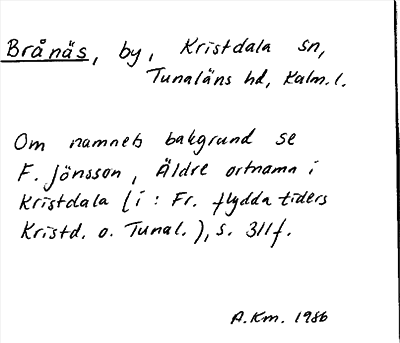 Brånäs, by, Kristdala sn,
Tunaläns hd, Kalm. l.
Om namnets bakgrund se
F. Jönsson, Äldre ortnamn i
Kristdala (i: Fr. flydda tiders
Kristd. o. Tunal.), s. 311f.
A.Km. 1986